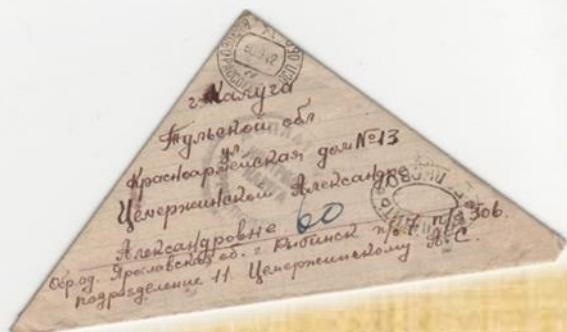 г Калуга
Тульской обл
ул.
Красноармейская дом №13
Цемержинской Александре
Александровне
60
Обр. ад. Ярославская об. г. Рыбинск п/я п/о 306.
подразделение 11 Цемержинскому А. С.